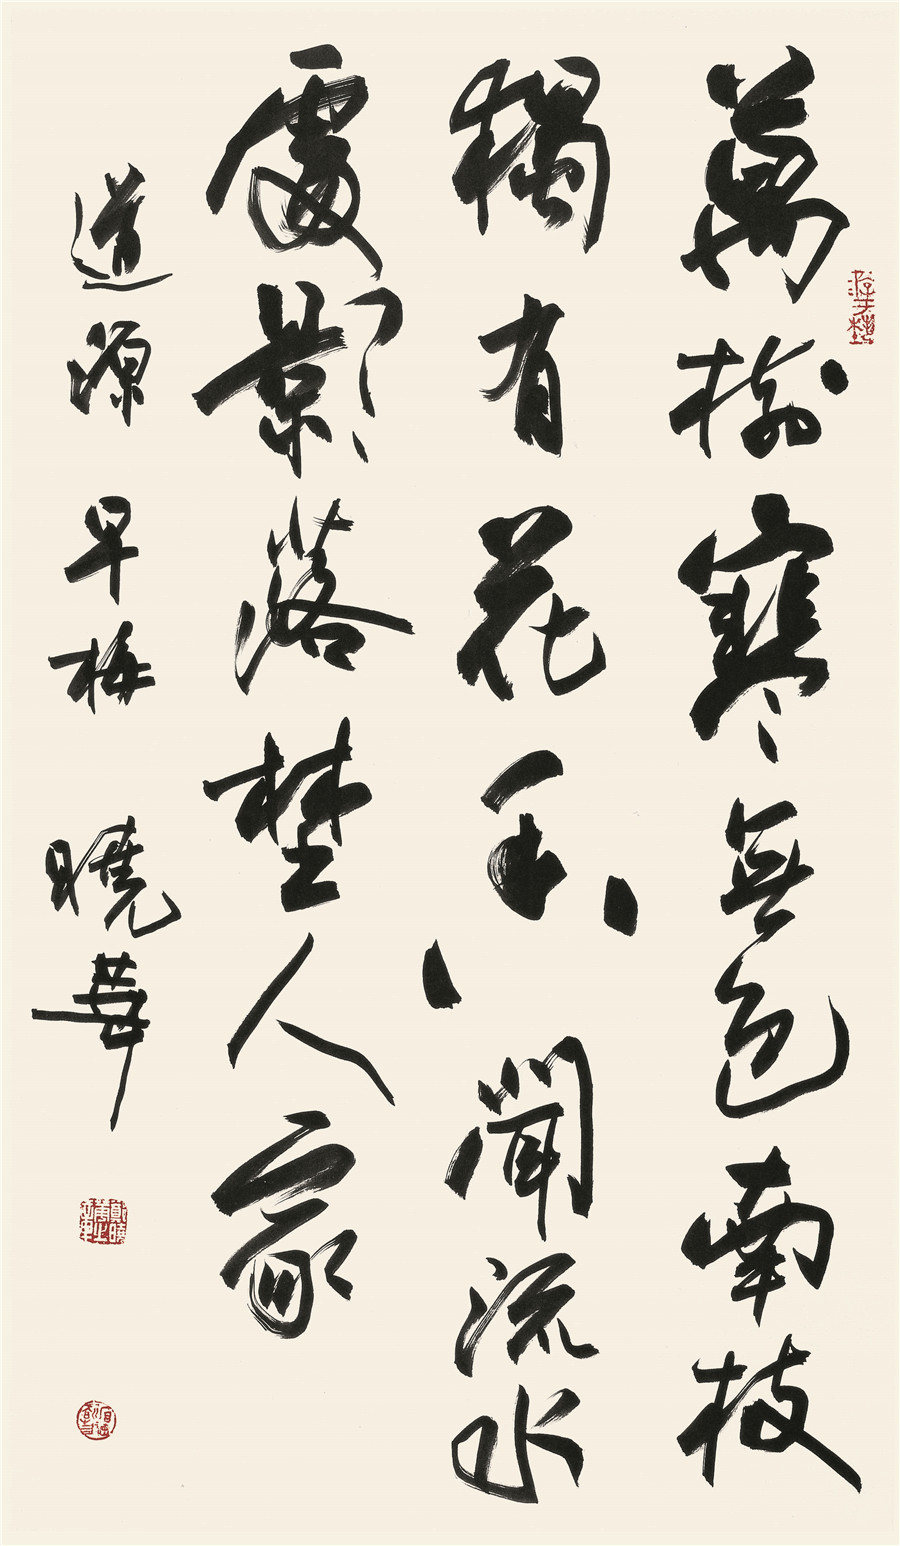 萬樹寒無色南枝
獨有花香聞流水
處影落埜人家
道源 早梅 曉華